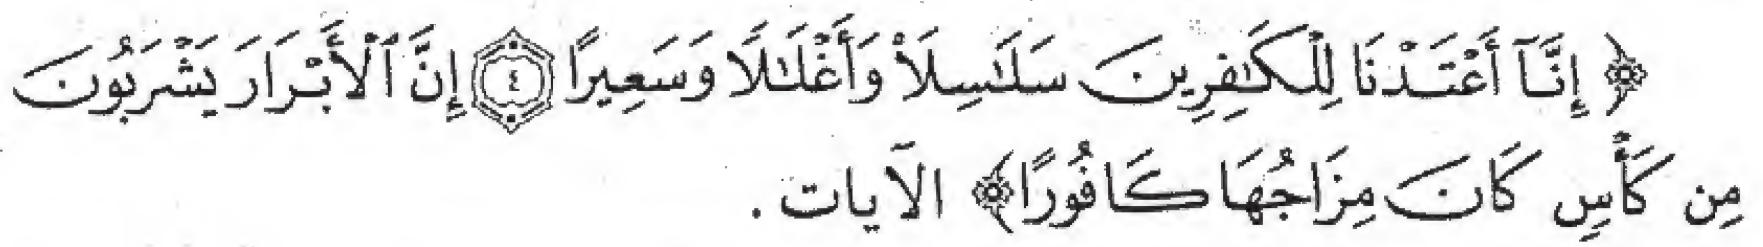 ﴿ إِنَّآ أَعْتَدْنَا لِلْكَٰفِرِينَ سَلَٰسِلَا۟ وَأَغْلَٰلًا وَسَعِيرًا ٤ إِنَّ ٱلْأَبْرَارَ يَشْرَبُونَ
مِن كَأْسٍ كَانَ مِزَاجُهَا كَافُورًا﴾ الآيات .